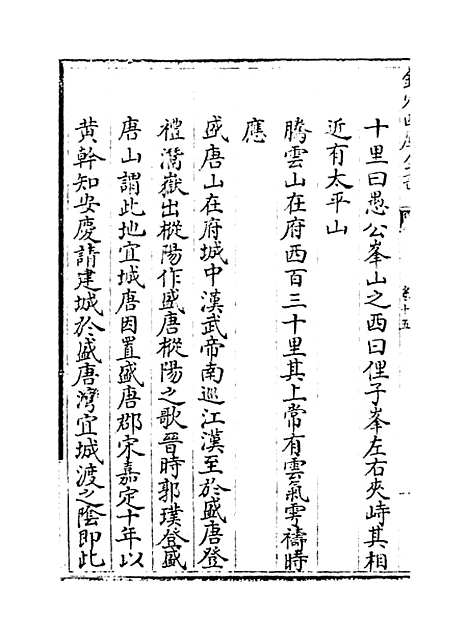 十里曰愚公峯山之西曰俚子峯左右夾峙其相
近有太平山
騰雲山在府西百三十里其上常有雲氣雩禱時
應
盛唐山在府城中漢武帝南巡江漢至於盛唐登
禮灊嶽出樅陽作盛唐樅陽之歌晉時郭璞登盛
唐山謂此地宜城唐因置盛唐郡宋嘉定十年以
黄幹知安慶請建城於盛唐灣宜城渡之陰即此